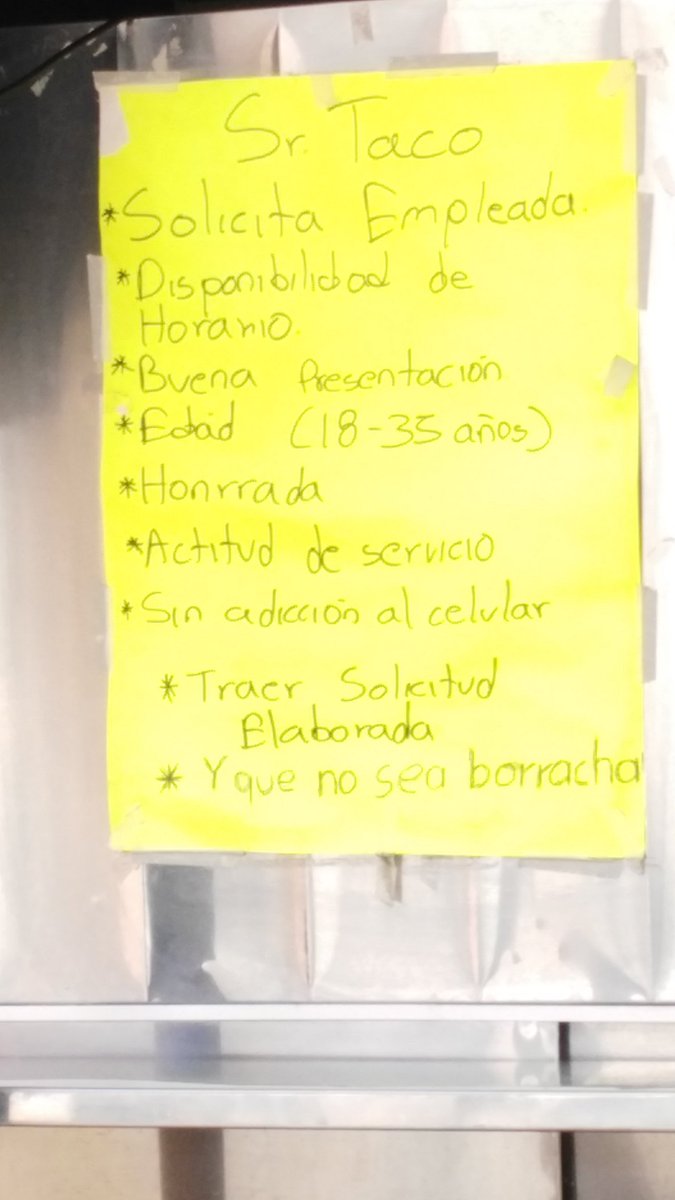 Sr. Taco
*Solicita Empleada.
*Disponibilidad de
Horario.
*Buena Presentación
*Edad (18-35 años)
*Honrrada
*Actitud de servicio
*Sin adicción al celular
*Traer Solicitud
Elaborada
* Y que no sea borracha